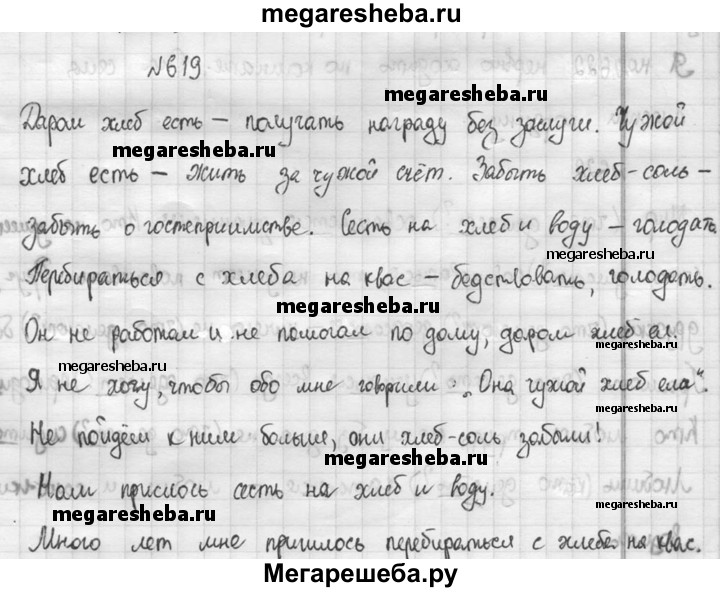 megaresheba.ru
№619
Даром хлеб есть – получать награду без заслуги. Чужой
megaresheba.ru
megaresheba.ru
хлеб есть – жить за чужой счёт. Забыть хлеб-соль –
забыть о гостеприимстве. Сесть на хлеб и воду – голодать.
megaresheba.ru
Перебираться с хлеба на квас – бедствовать, голодать.
megaresheba.ru
Он не работал и не помогал по дому, даром хлеб ел.
megaresheba.ru
megaresheba.ru
Я не хочу, чтобы обо мне говорили: „Она чужой хлеб ела".
megaresheba.ru
Не пойдём к ним больше, они хлеб-соль забыли!
megaresheba.ru
Нам пришлось сесть на хлеб и воду.
megaresheba.ru
megaresheba.ru
Много лет мне пришлось перебираться с хлеба на квас.
Мегарешеба.ру